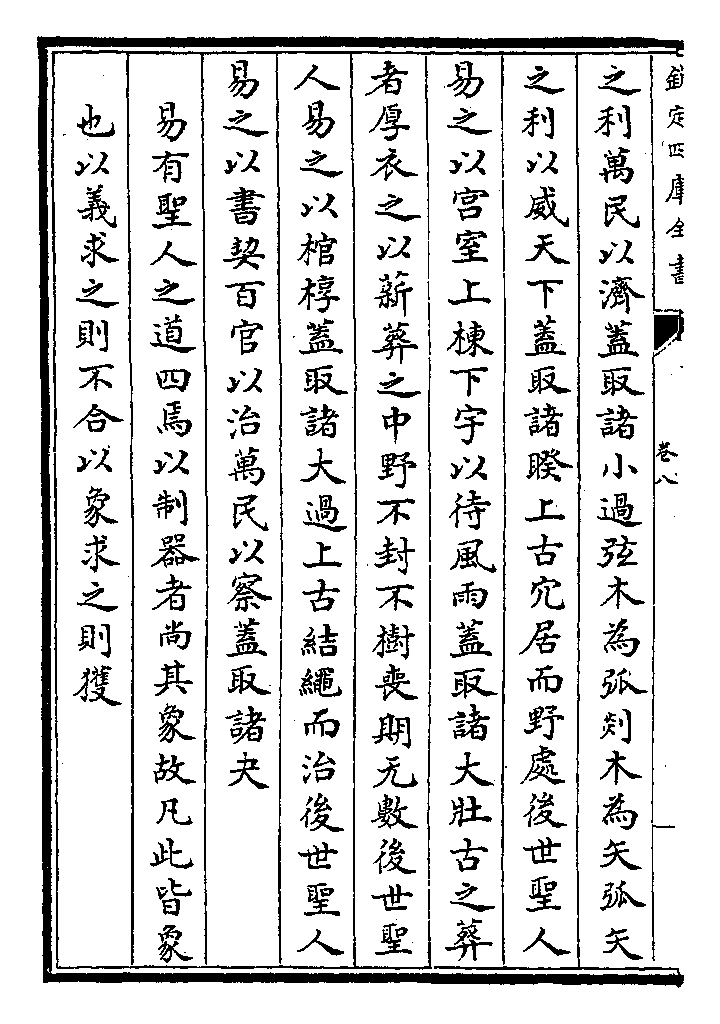 欽定四庫全書
卷八
之利萬民以濟蓋取諸小過弦木為弧剡木為矢弧矢
之利以威天下蓋取諸睽上古穴居而野處後世聖人
易之以宫室上棟下宇以待風雨蓋取諸大壯古之葬
者厚衣之以薪葬之中野不封不樹喪期无數後世聖
人易之以棺椁蓋取諸大過上古結繩而治後世聖人
易之以書契百官以治萬民以察蓋取諸夬
易有聖人之道四焉以制器者尚其象故凡此皆象
也以義求之則不合以象求之則獲